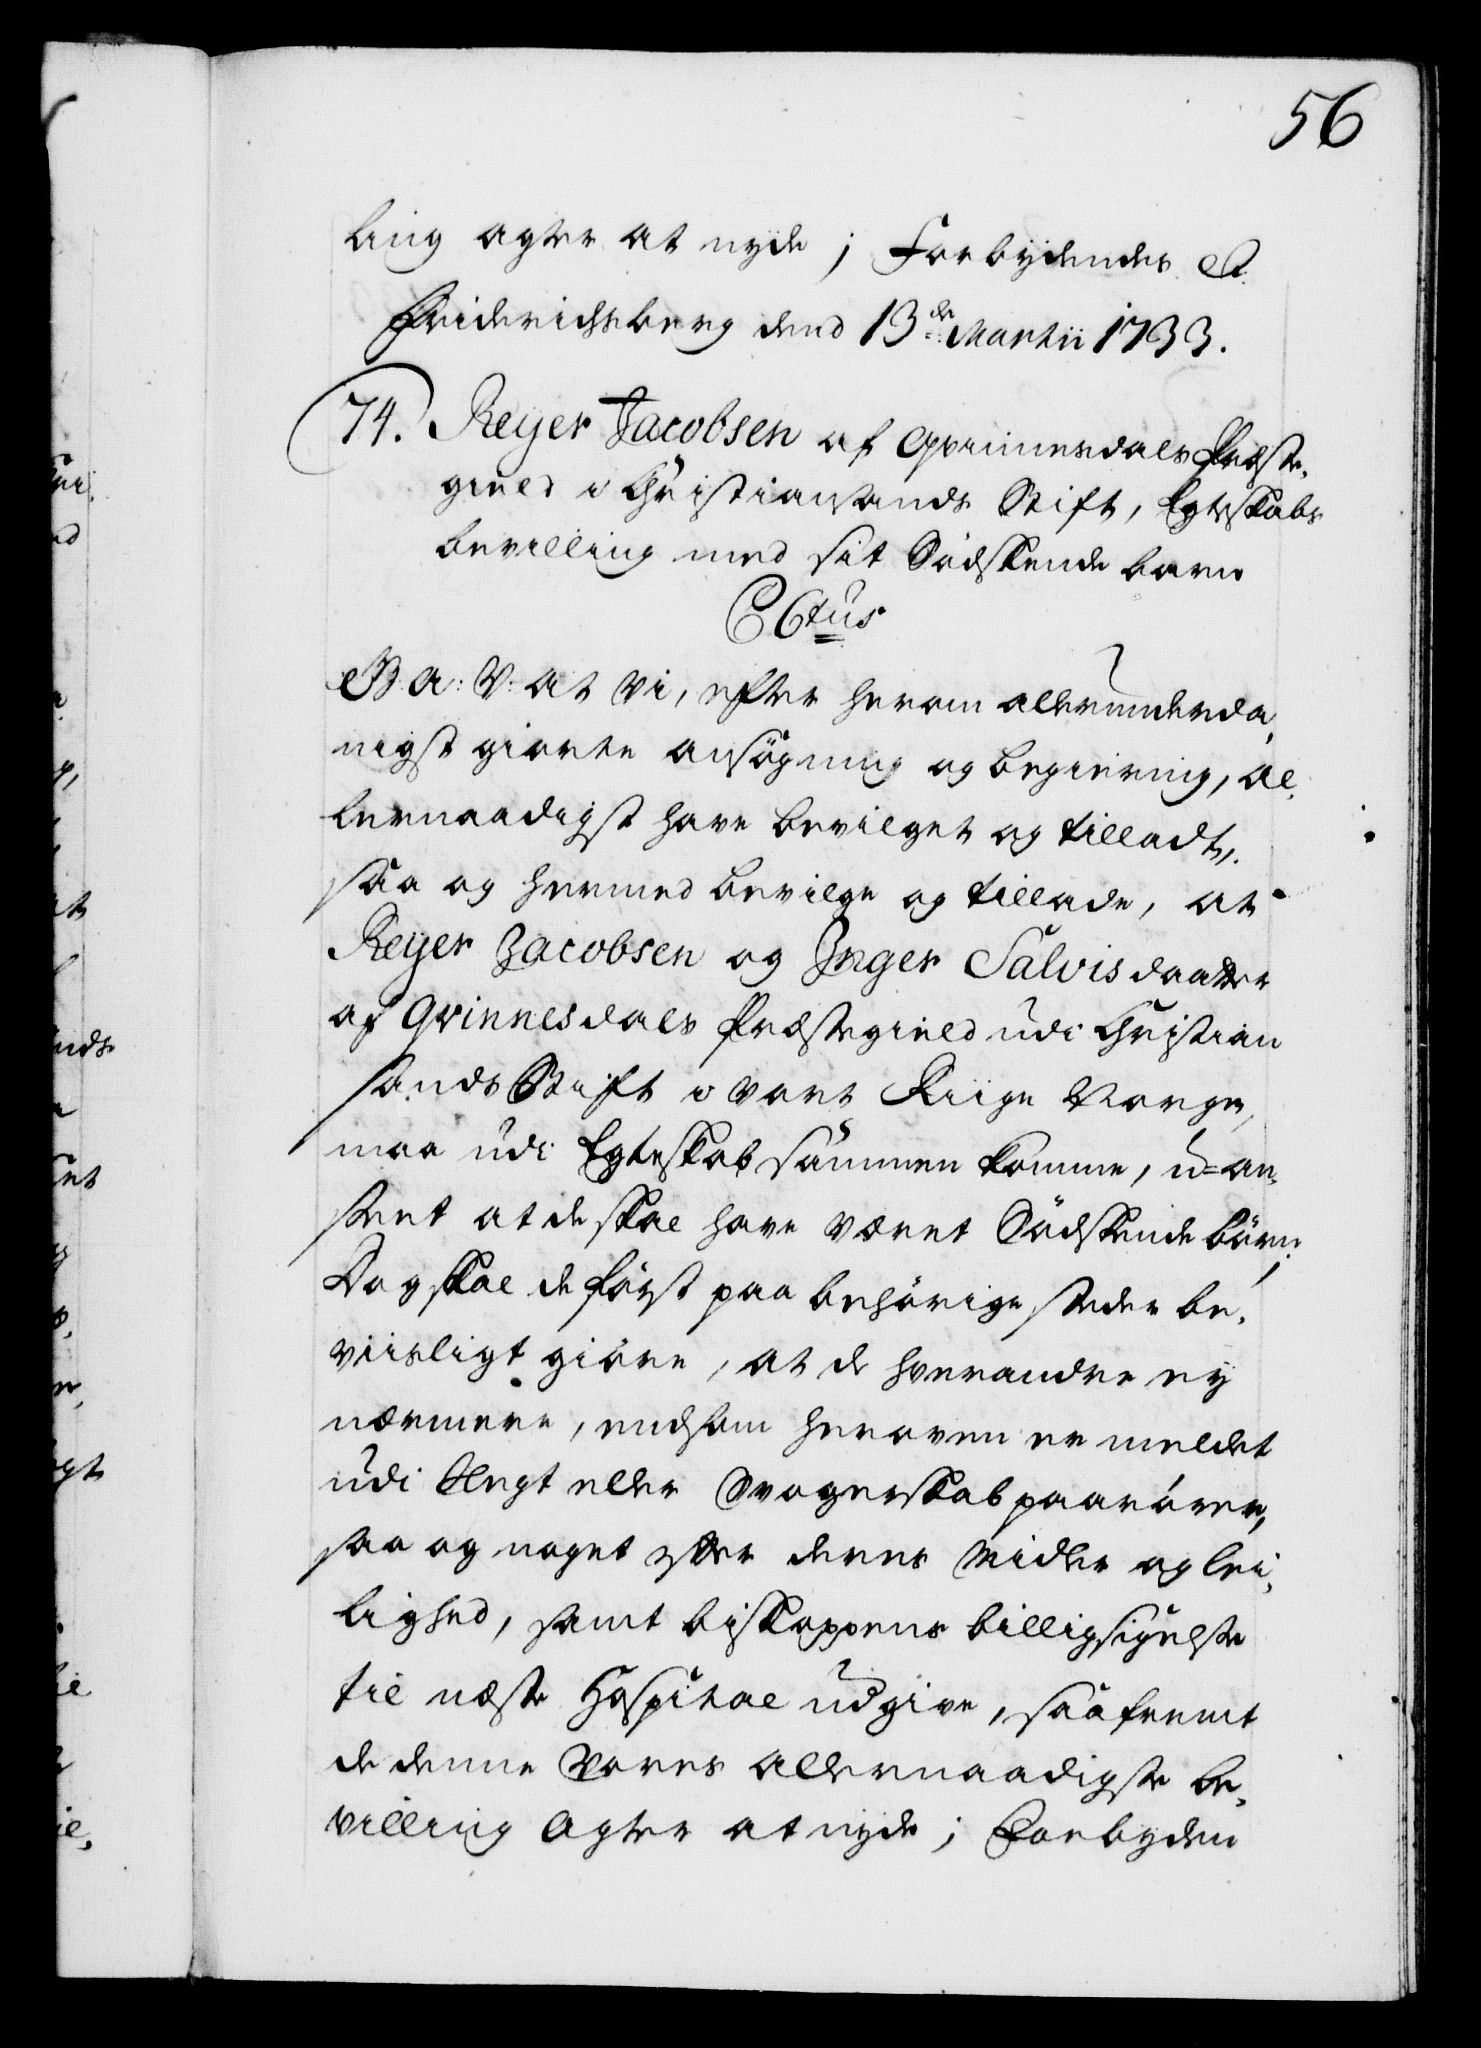 56
ling agter at nyde; Forbydendes &c.
Friderichsberg dend 13de Martii 1733.
74. Reyer Jacobsen af Qvinnesdals Præste-
gield i Christiansands Stift, Egteskabs
bevilling med sit Sødskende barn
C 6tus
G. A: V: at Vi, efter herom allerunderda-
nigst giorte ansøgning og begiering, al-
lernaadigst have bevilget og tilladt,
saa og hermed bevilge og tillade, at
Reyer Jacobsen og Inger Salvisdaatter
af Qvinnesdals Præstegield udi Christian
sands Stift i vort Riige Norge,
maa udi Egteskab sammen komme, u-an-
seet at de skal have været Sødskende børn;
Dog skal de først paa behørige steder be-
viisligt giøre, at de hverandre ey
nærmere, end som heroven er meldet
udi Slegt eller Svogerskab paarører,
saa og noget efter deres Midler og lei-
lighed, samt biskoppens billigsigelse
til næste Hospital udgive, saafremt
de denne Vores allernaadigste be-
villing agter at nyde; Forbyden